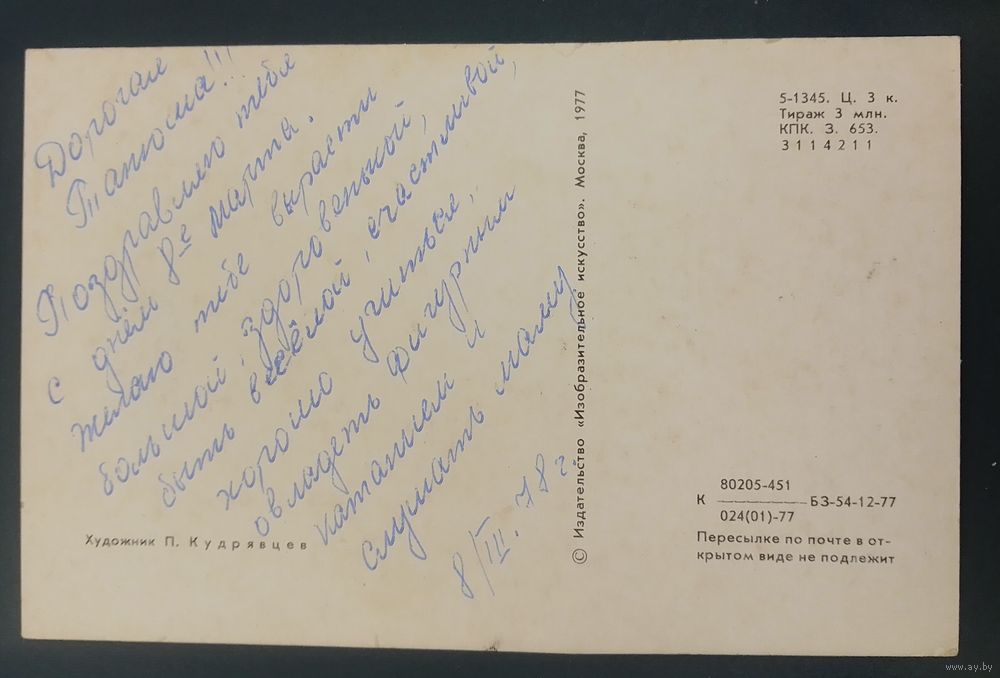 Дорогая
Танюша!!!
Поздравляю тебя
с днём 8-е марта.
Желаю тебе вырасти
большой, здоровенькой,
быть весёлой, счастливой,
хорошо учиться,
овладеть фигурным
катанием и
слушать маму.
8/III. 78 г
Художник П. Кудрявцев
© Издательство «Изобразительное искусство». Москва, 1977
5-1345. Ц. 3 к.
Тираж 3 млн.
КПК. З. 653.
3114211
80205-451
К ———— БЗ-54-12-77
024(01)-77
Пересылке по почте в от-
крытом виде не подлежит
www.ay.by